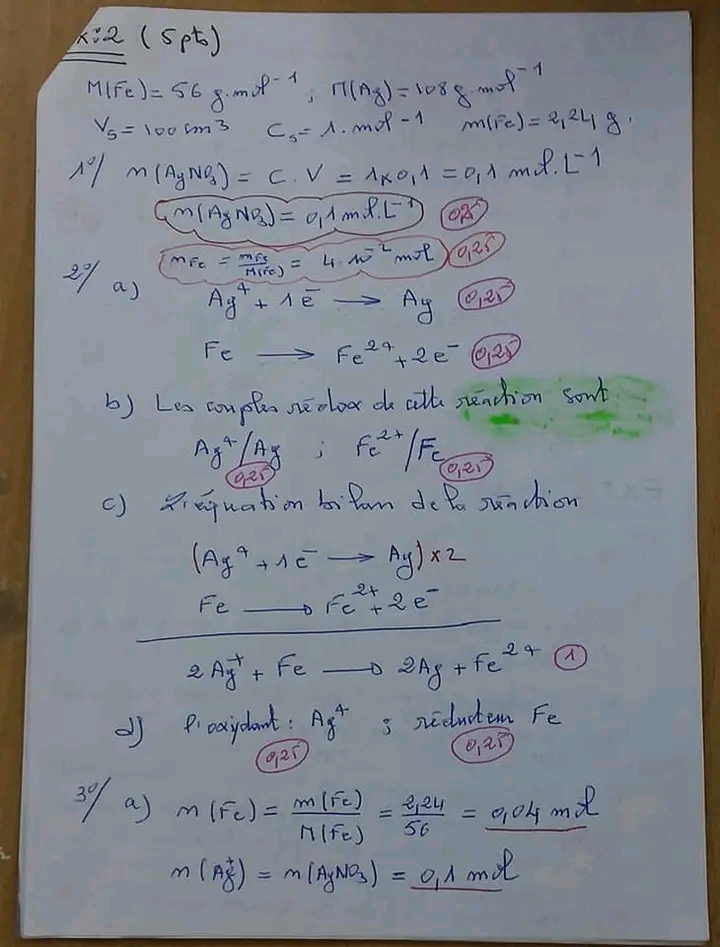 x:2 (5pts)
M(Fe) = 56 g.mol⁻¹ ; M(Ag) = 108 g.mol⁻¹
Vs = 100 cm³ Cs = 1.mol⁻¹ m(Fe) = 2,24 g.
1°/ n(AgNO₃) = C.V = 1x0,1 = 0,1 mol.L⁻¹
n(AgNO₃) = 0,1 mol.L⁻¹ 0,25
2°/ nFe = mFe/M(Fe) = 4.10⁻² mol 0,25
a) Ag⁺ + 1e⁻ → Ag 0,25
Fe → Fe²⁺ + 2e⁻ 0,25
b) Les couples rédox de cette réaction sont
Ag⁺/Ag ; Fe²⁺/Fe
0,25 0,25
c) L'équation bilan de la réaction
(Ag⁺ + 1e⁻ → Ag) x 2
Fe → Fe²⁺ + 2e⁻
2Ag⁺ + Fe → 2Ag + Fe²⁺ 1
d) l'oxydant : Ag⁺ ; réducteur Fe
0,25 0,25
3°/ a) n(Fe) = m(Fe)/M(Fe) = 2,24/56 = 0,04 mol
n(Ag⁺) = n(AgNO₃) = 0,1 mol